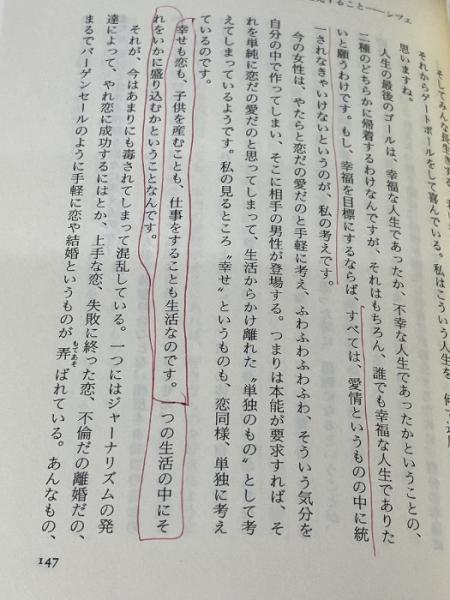 することーーシヅエ
そしてみんな長生きする。
それからゲートボールをして喜んでいる。私はこういう人生を、何て
思いますね。
人生の最後のゴールは、幸福な人生であったか、不幸な人生であったかということの、
二種のどちらかに帰着するわけなんですが、それはもちろん、誰でも幸福な人生でありた
いと願うわけです。もし、幸福を目標にするならば、すべては、愛情というものの中に統
一されなきゃいけないというのが、私の考えです。
今の女性は、やたらと恋だの愛だのと手軽に考え、ふわふわふわふわ、そういう気分を
自分の中で作ってしまい、そこに相手の男性が登場する。つまりは本能が要求すれば、そ
れを単純に恋だの愛だのと思ってしまって、生活からかけ離れた〝単独のもの〟として考
えてしまっているようです。私の見るところ〝幸せ〟というものも、恋同様、単独に考え
ているのです。
幸せも恋も、子供を産むことも、仕事をすることも生活なのです。一つの生活の中にそ
れをいかに盛り込むかということなんです。
それが、今はあまりにも毒されてしまって混乱している。一つにはジャーナリズムの発
達によって、やれ恋に成功するにはとか、上手な恋、失敗に終った恋、不倫だの離婚だの、
まるでバーゲンセールのように手軽に恋や結婚というものが弄もてあそばれている。あんなもの、
147